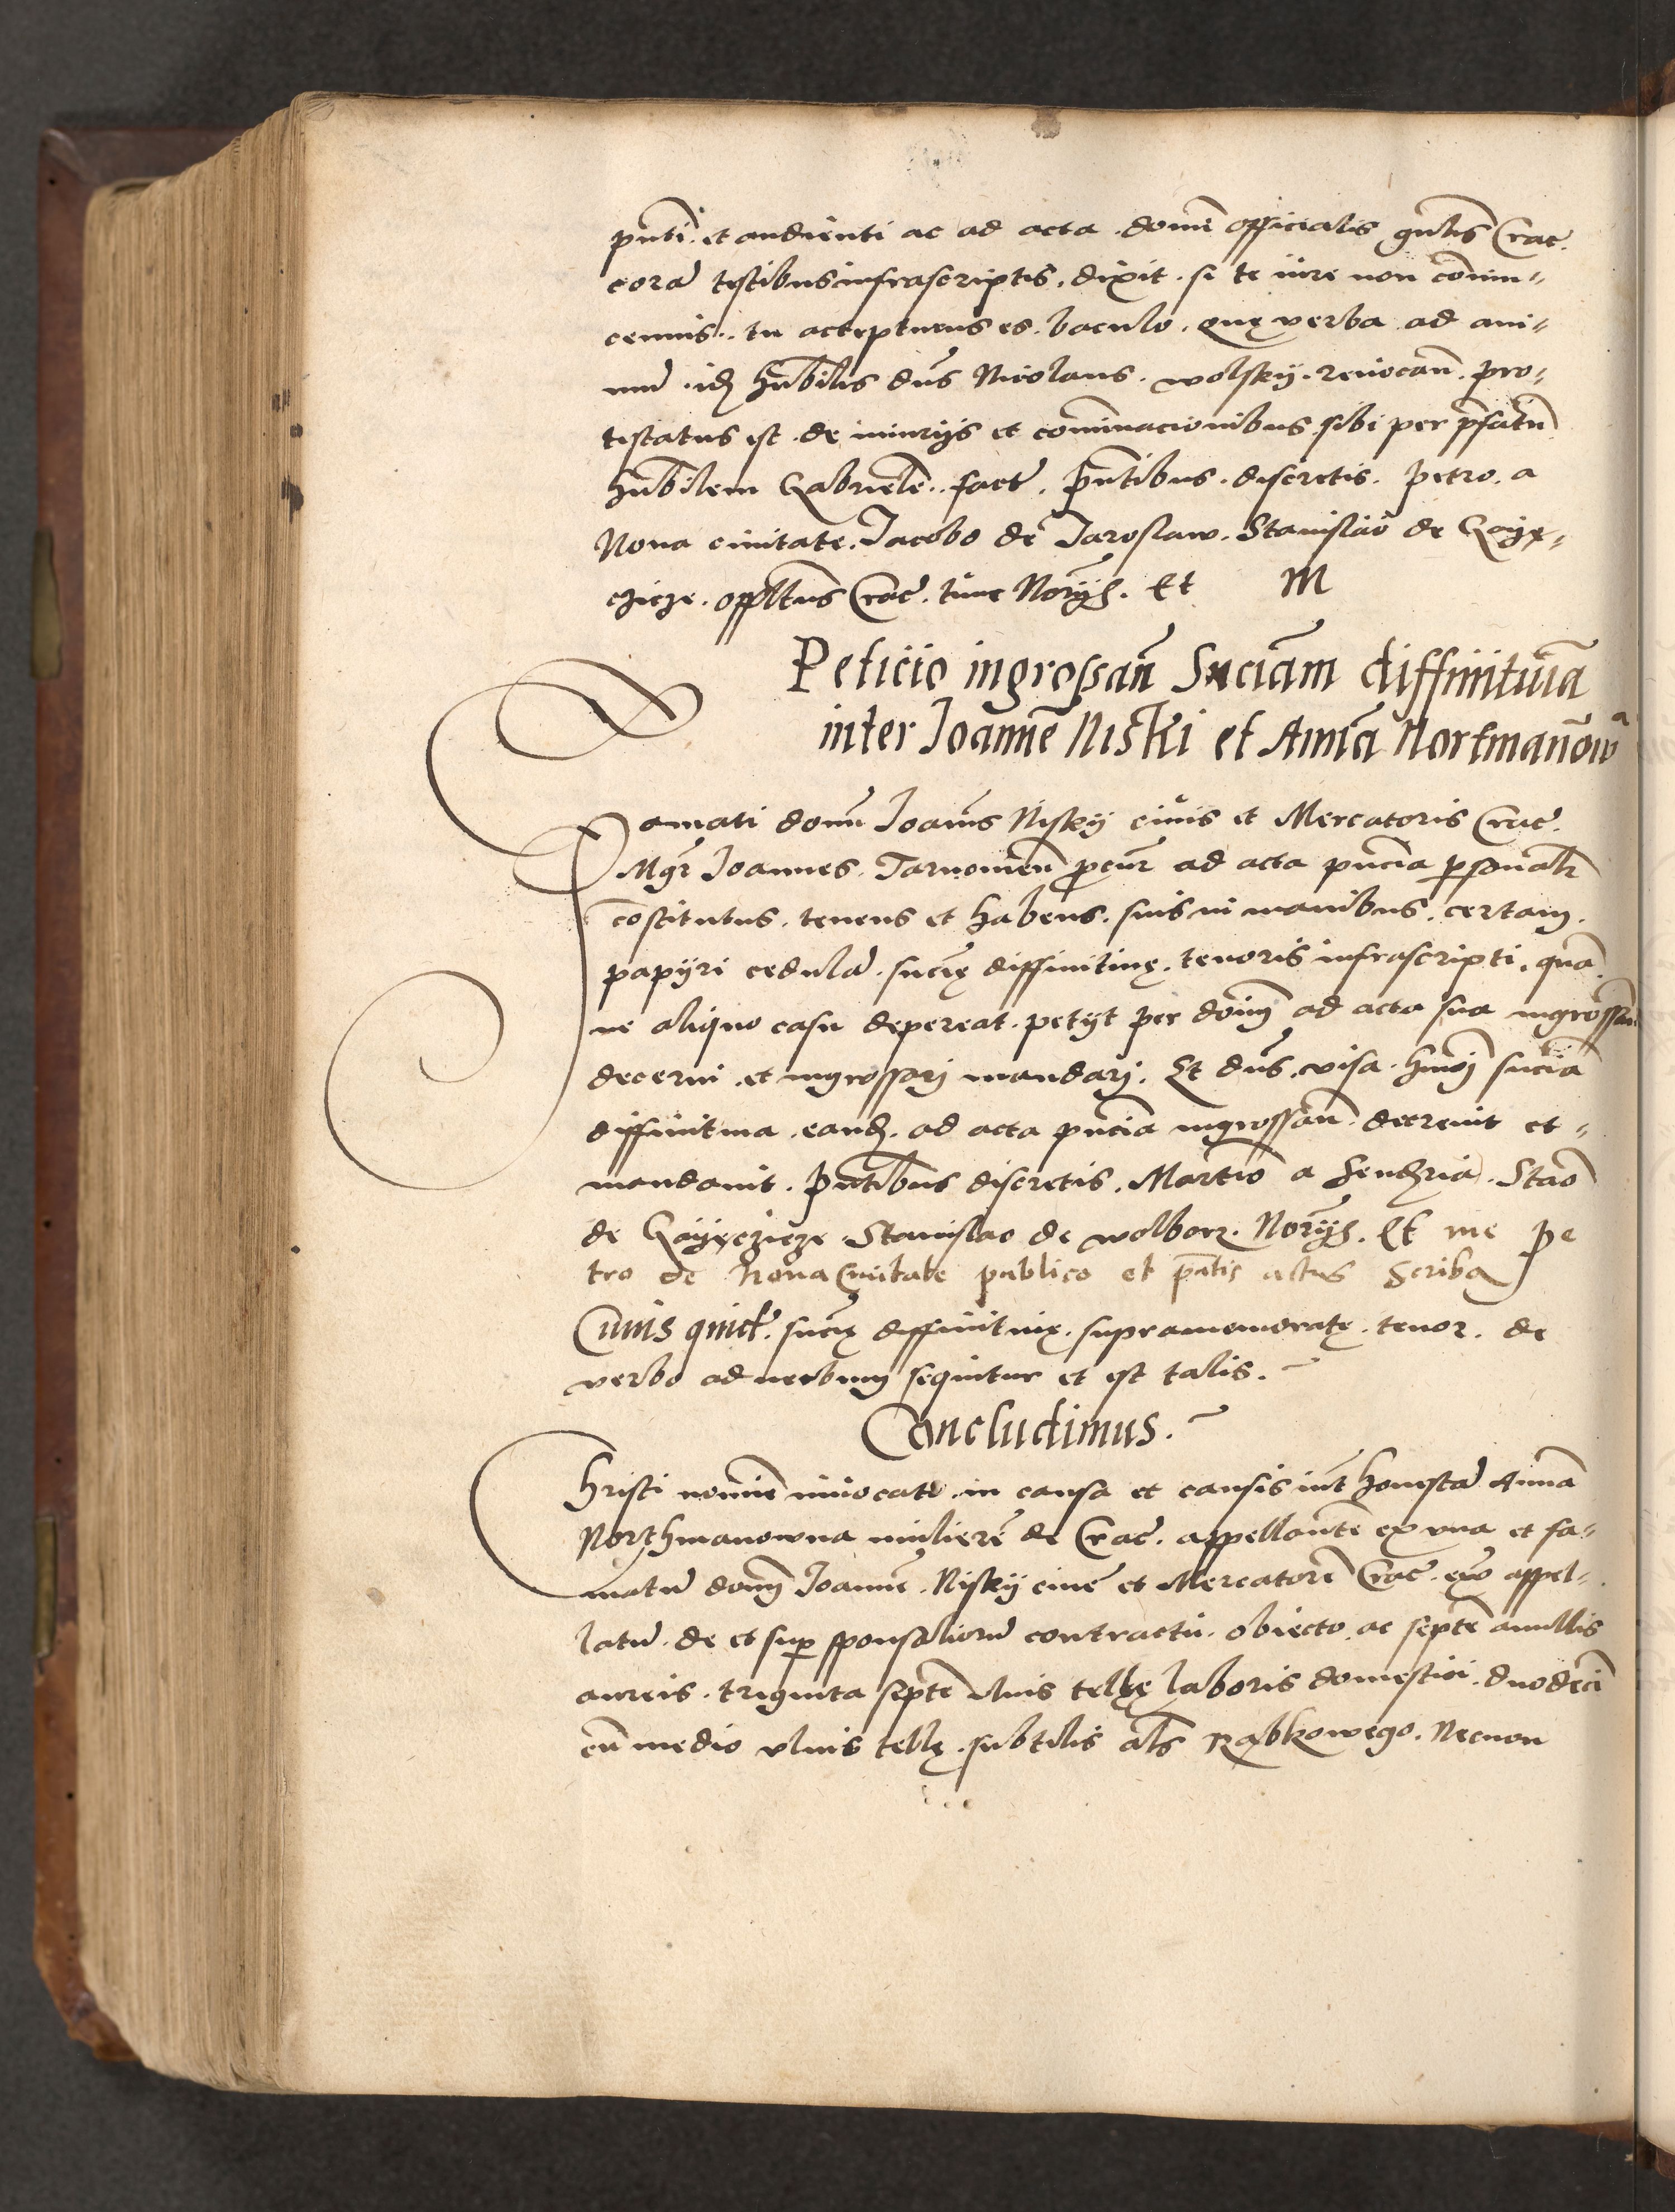 pn̄ti et audienti ac ad acta domī officialis gn̄lis Crac̄.
corā testibus infrascriptis. dixit. si te iure non conuin⸗
cemus. tu accepturus es. baculo. quę verba ad ani⸗
mū idē hūbilis dn̄s Nicolaus. wolskÿ. reuocan̄. pro⸗
testatus est de iniurÿs et cominacionibus sibi per p̄fatū
hūbilem Gabrielē. fact̄. pn̄tibus. discretis. petro. a
Noua ciuitate. Jacobo de Jaroslaw. Stanislao de
czicze. Crac̄. tunc Norÿs. Et M
Peticio ingrossan̄ Sn̄ciam diffinituā
inter Joannē Niski et Annā Nortmanowa
Famati domī Joan̄is Niskÿ ciuis et Mercatoris Crac̄.
Mgr̄ Joannes. Tarnouien̄ p̄cur̄ ad acta pn̄cia p̄sonalr̄
cōstitutus. tenens et habens. suis in manibus. certam.
papÿri cedulā. sn̄cię diffinitiuę. tenoris infrascripti. quā
ne aliquo casu depereat. petÿt per dōm̄ ad acta sua ingrossari
decerni et ingrossarj mandarj. Et dn̄s. visa. hm̄oj sn̄ciā
diffinitiua. eandē. ad acta pn̄cia ingrossan̄. decreuit et⸗
mandauit. Pn̄tibus discretis. Martino a Sendzria. Stao
de Stanislao de wolborz. Norÿs. Et me Pe
tro de Noua Ciuitate publico et pn̄tis actus scriba
Cuius quid̄. sn̄cię diffinitiuę. supramemoratę. tenor. de
verbo ad uerbum sequitur et est talis.
Concludimus.
Christi nomīe inuocato. in causa et causis int̄ honestā Annā
Northmanowna mulierē de Crac̄. appellantē ex vna et fa⸗
matū dom̄ Joannē. Niskÿ ciuē et Mercatorē Crac̄. ex̄ appel⸗
latū. de et sup̄ sponsaliorū contractū. obiecto. ac septē anullis
aureis. triginta septē vlnis tellę laboris domestici. duodeci
cū medio vlnis tellę. subtilis als̄ Rąbkowego. Necnon